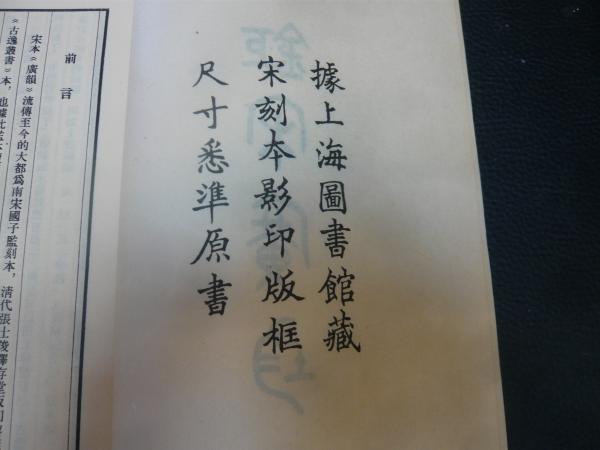 據上海圖書館藏
宋刻本影印版框
尺寸悉準原書
前言
宋本《廣韻》流傳至今的大都爲南宋國子監刻本，清代張士俊澤存堂
《古逸叢書》本，也據此